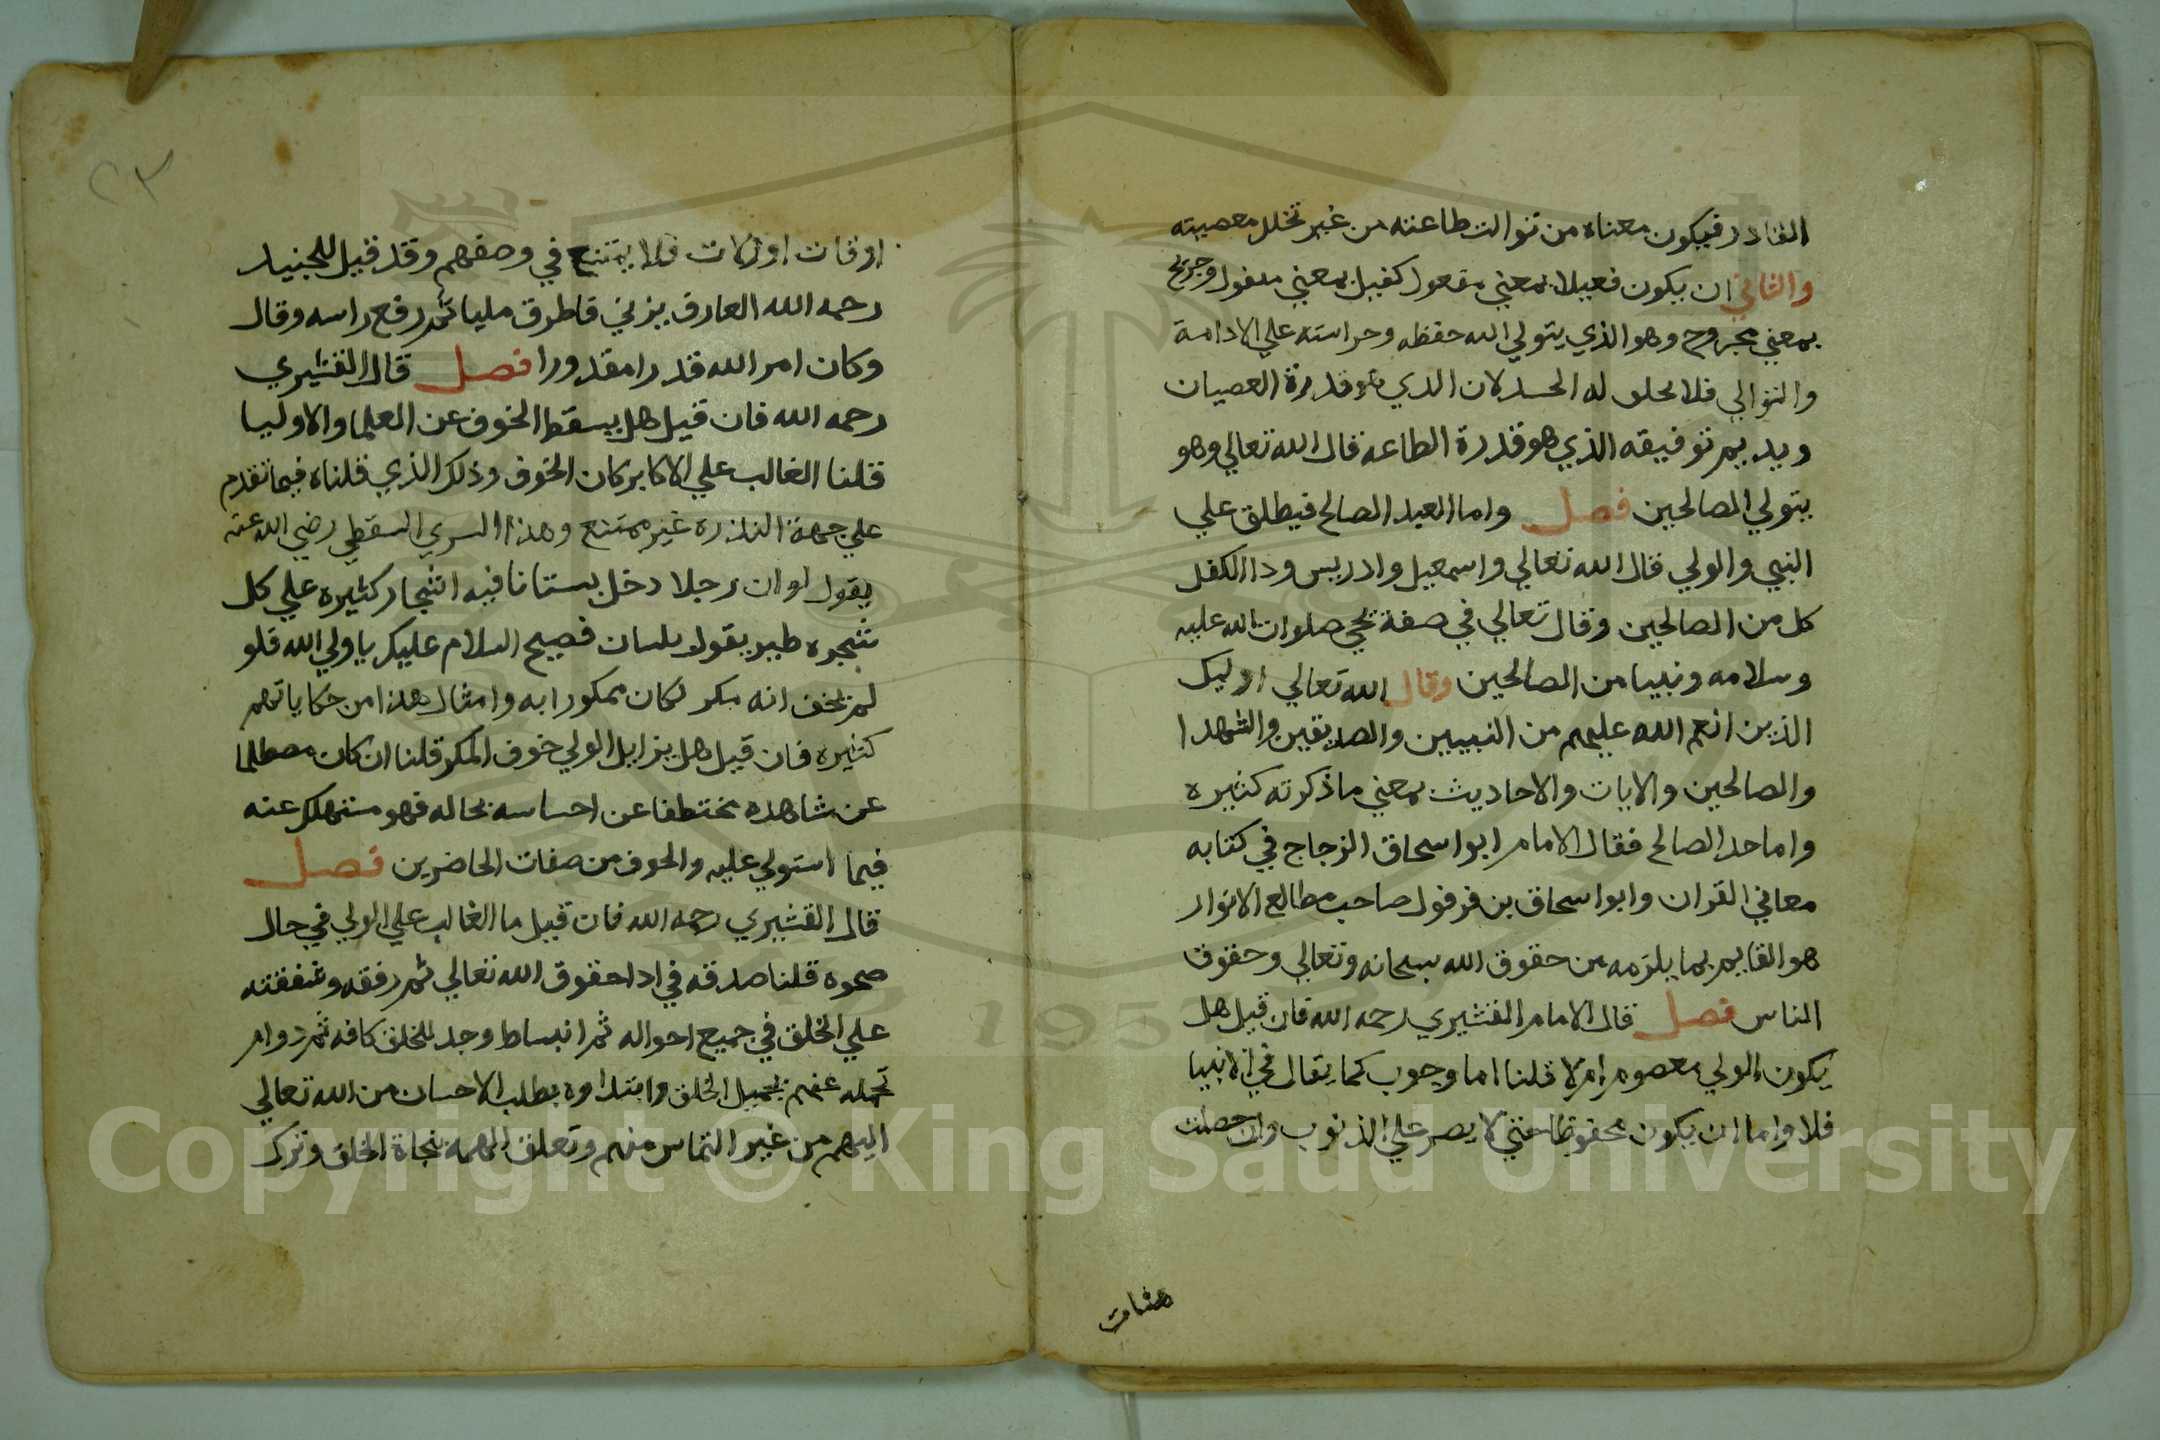 القادر فيكون معناه من توالت طاعته من غير تخلل معصيته
والثاني ان يكون فعيلا بمعني مفعول كقتيل بمعني مقتول وجريح
بمعني مجروح وهو الذي يتولي الله حفظه وحراسته علي الادامة
والتوالي فلا يخلق له الذي هو قدرة العصيان
ويديم توفيقه الذي هو قدرة الطاعه قال الله تعالي وهو
يتولي الصالحين فصل واما العبد الصالح فيطلق علي
النبي والولي قال الله تعالي واسمعيل وادريس وذا الكفل
كل من الصالحين وقال تعالي في صفة يحي صلوات الله عليه
وسلامه ونبيا من الصالحين وقال الله تعالي اوليك
الذين انعم الله عليهم من النبيين والصديقين والشهدا
والصالحين والايات والاحاديث بمعني ما ذكرته كثيره
واما حد الصالح فقال الامام ابو اسحاق الزجاج في كتابه
معاني القران وابو اسحاق بن قرقول صاحب مطالع الانوار
هو القايم بما يلزمه من حقوق الله سبحانه وتعالي وحقوق
الناس فصل قال الامام القشيري رحمه الله فان قيل هل
يكون الولي معصوم ام لا قلنا اما وجوب كما يقال في الانبيا
فلا واما ان يكون محفوظا حتي لا يصر علي الذنوب وان حصلت
هنات
٢٣
اوقات او زلات فلا يمتنع في وصفهم وقد قيل للجنيد
رحمه الله العارف يزني فاطرق مليا ثم رفع راسه وقال
وكان امر الله قدرا مقدورا فصل قال القشيري
رحمه الله فان قيل هل يسقط الخوف عن العلما والاوليا
قلنا الغالب علي الاكابر كان الخوف وذلك الذي قلناه فيما تقدم
علي جهة الندرة غير ممتنع وهذا السري السقطي رضي الله عنه
يقول لو ان رجلا دخل بستانا فيه اشجار كثيره علي كل
شجره طير يقول بلسان فصيح السلام عليك يا ولي الله فلو
لم يخف انه مكر لكان ممكورا به وامثال هذا من حكاياتهم
كثيره فان قيل هل يزايل الولي خوف المكر قلنا ان كان مصطلما
عن شاهده مختطفا عن احساسه بحاله فهو مستهلك عنه
فيما استولي عليه والخوف من صفات الحاضرين فصل
قال القشيري رحمه الله فان قيل ما الغالب علي الولي في حال
صحوه قلنا صدقه في ادا حقوق الله تعالي ثم رفقه وشفقته
علي الخلق في جميع احواله ثم انبساط وجد للخلق كافه ثم دوام
تحمله عنهم بجميل الخلق وابتداوه بطلب الاحسان من الله تعالي
اليهم من غير التماس منهم وتعلق الهمه بنجاة الخلق وترك
1957
Copyright © King Saud University